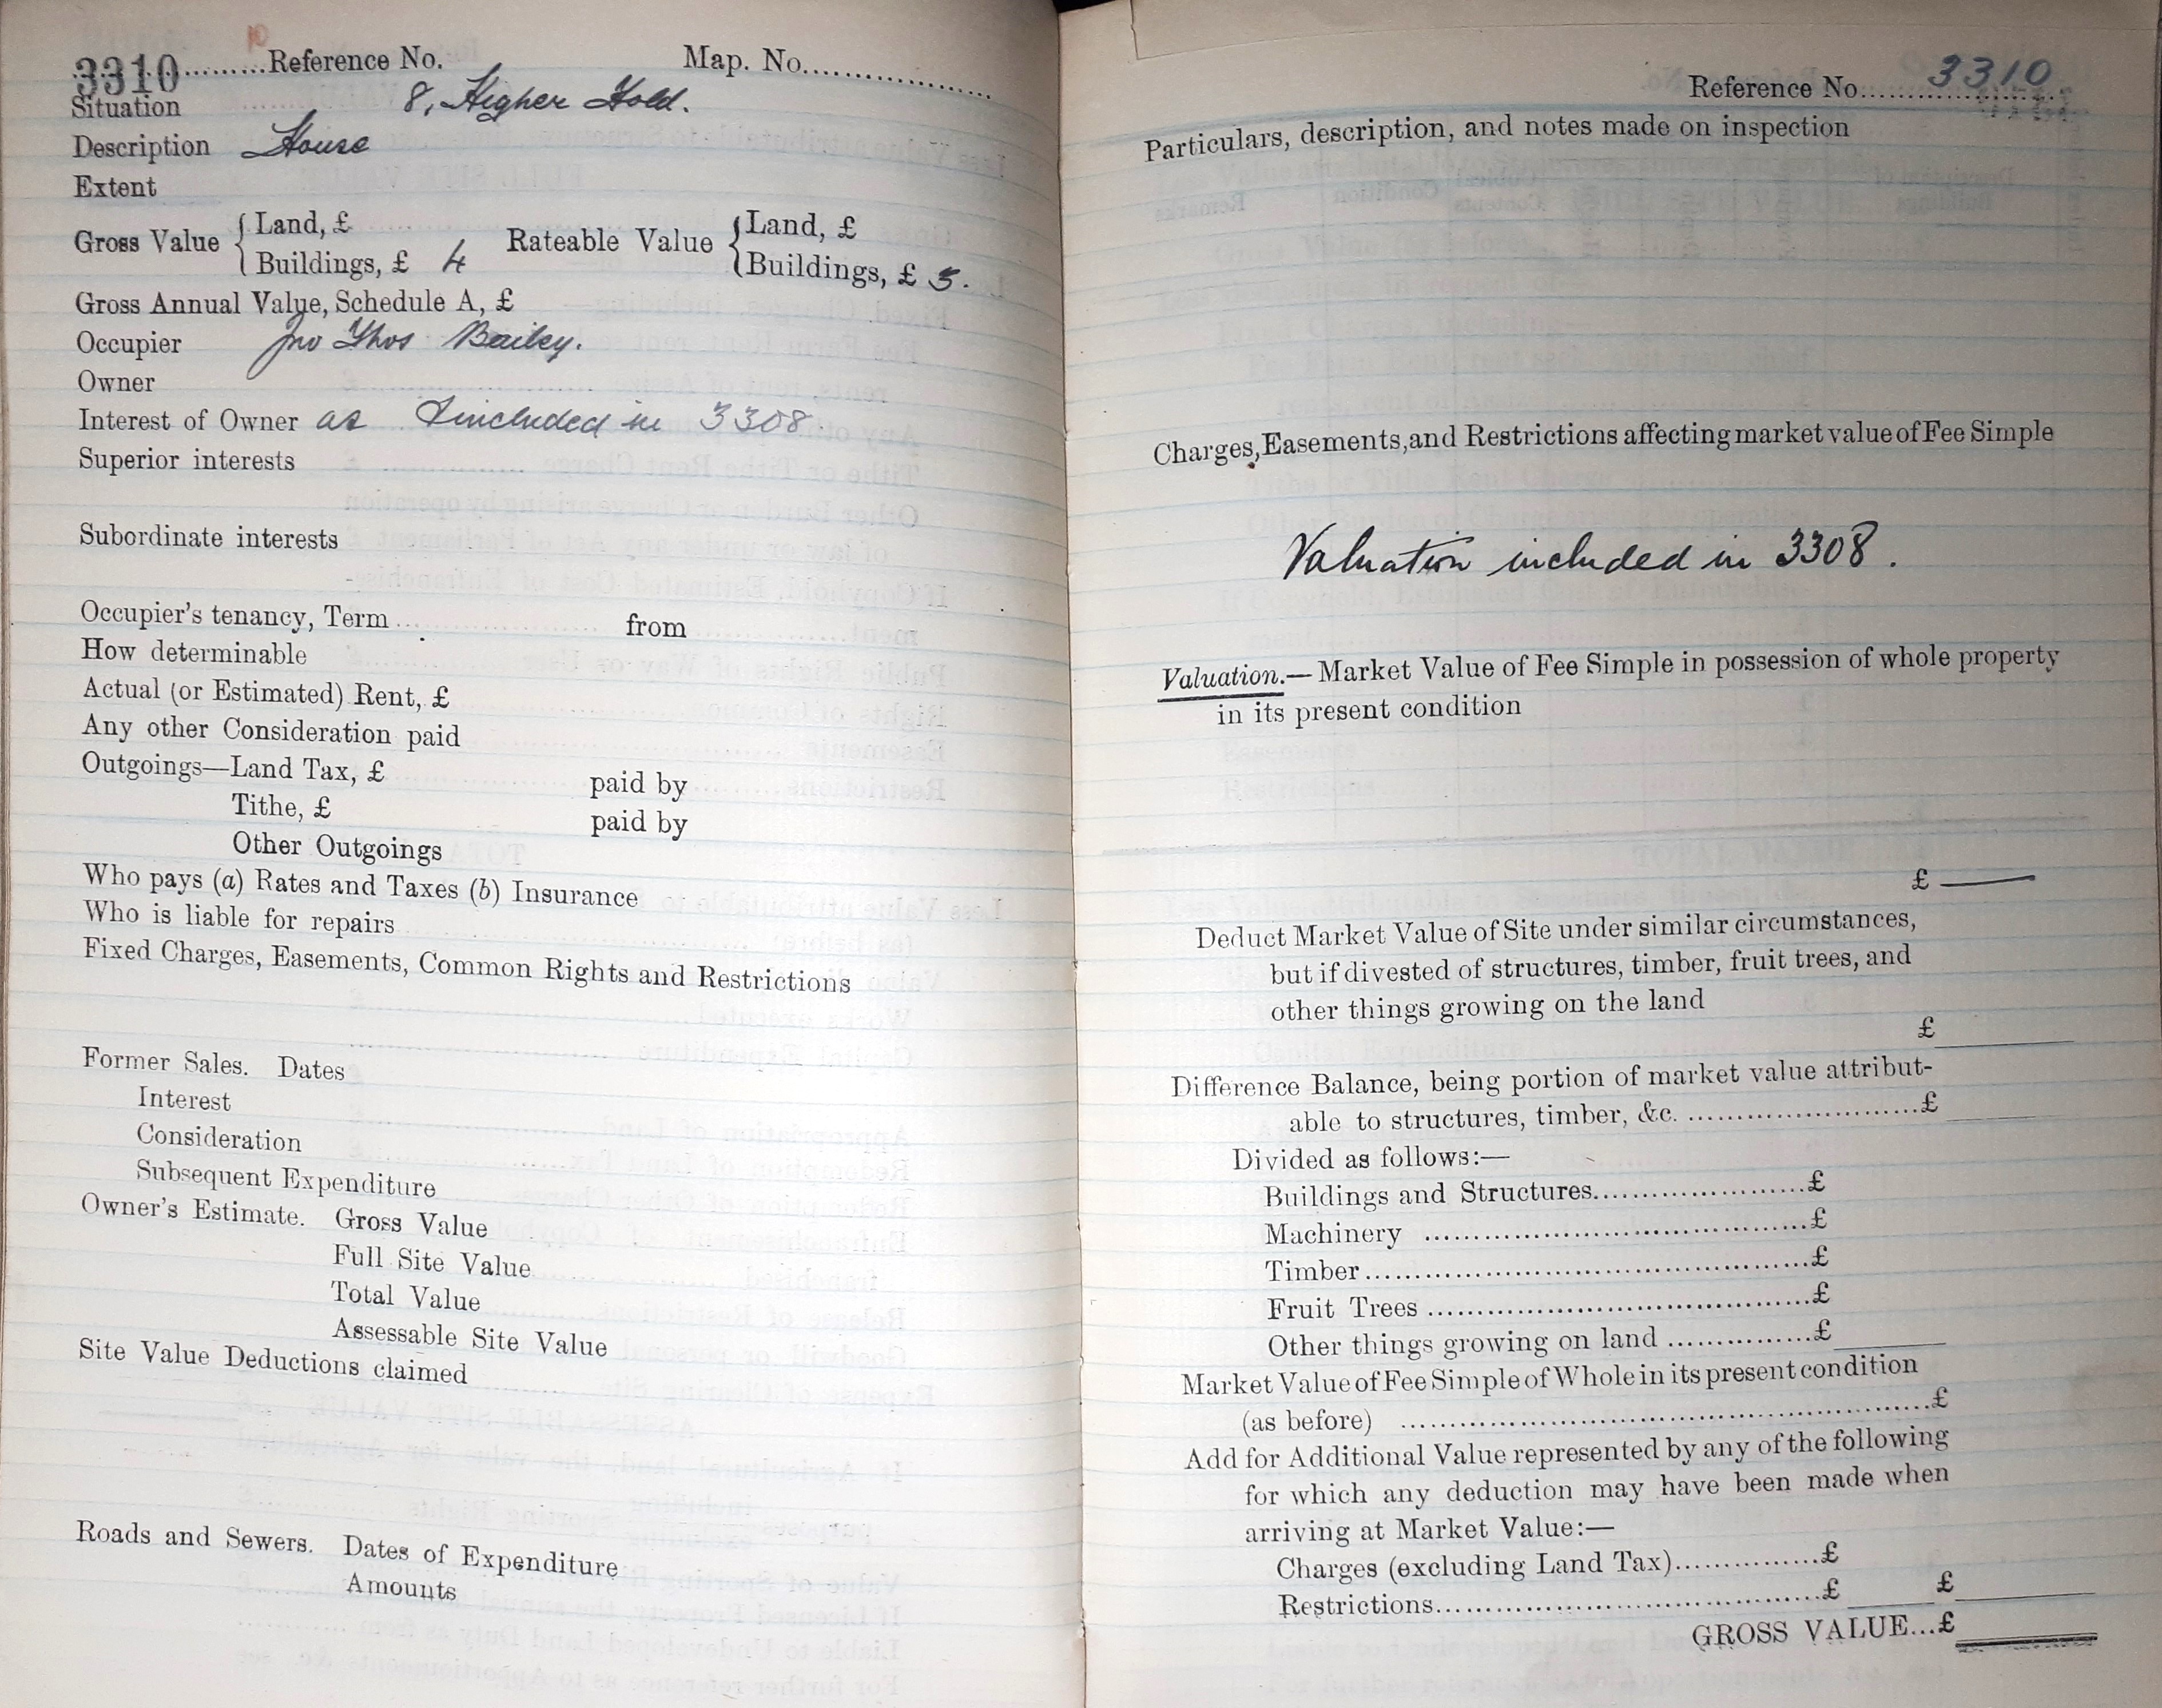 3310.........Reference No. Map. No...................
Situation 8, Higher Hold.
Description House
Extent
Gross Value { Land, £ Rateable Value { Land, £
Buildings, £ 4 Buildings, £ 3.
Gross Annual Value, Schedule A, £
Occupier Jno Thos Bailey.
Owner
Interest of Owner as included in 3308.
Superior interests
Subordinate interests
Occupier's tenancy, Term from
How determinable
Actual (or Estimated) Rent, £
Any other Consideration paid
Outgoings—Land Tax, £ paid by
Tithe, £ paid by
Other Outgoings
Who pays (a) Rates and Taxes (b) Insurance
Who is liable for repairs
Fixed Charges, Easements, Common Rights and Restrictions
Former Sales. Dates
Interest
Consideration
Subsequent Expenditure
Owner's Estimate. Gross Value
Full Site Value
Total Value
Assessable Site Value
Site Value Deductions claimed
Roads and Sewers. Dates of Expenditure
Amounts
Reference No. 3310
Particulars, description, and notes made on inspection
Charges, Easements, and Restrictions affecting market value of Fee Simple
Valuation included in 3308.
Valuation.—Market Value of Fee Simple in possession of whole property
in its present condition
£ —
Deduct Market Value of Site under similar circumstances,
but if divested of structures, timber, fruit trees, and
other things growing on the land
£
Difference Balance, being portion of market value attribut-
able to structures, timber, &c. ..........................£
Divided as follows:—
Buildings and Structures.......................£
Machinery ..........................................£
Timber................................................£
Fruit Trees ..........................................£
Other things growing on land ...............£
Market Value of Fee Simple of Whole in its present condition
(as before) ......................................................£
Add for Additional Value represented by any of the following
for which any deduction may have been made when
arriving at Market Value:—
Charges (excluding Land Tax)................£
Restrictions..........................................£ £
GROSS VALUE...£